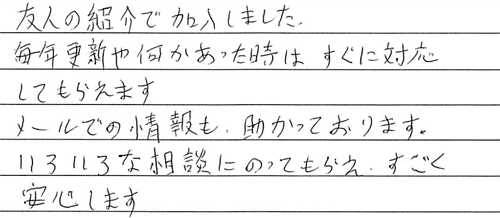 友人の紹介で加入しました.
毎年更新や何かあった時は すぐに対応
してもらえます
メールでの情報も、助かっております。
いろいろな相談にのってもらえ、すごく
安心します